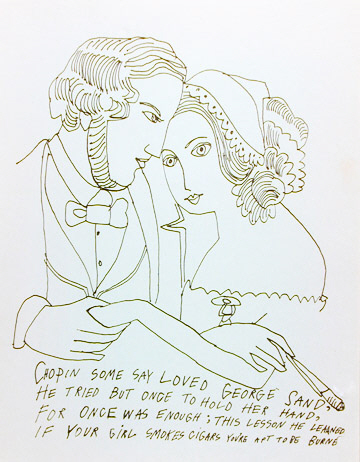 CHOPIN SOME SAY LOVED GEORGE SAND,
HE TRIED BUT ONCE TO HOLD HER HAND,
FOR ONCE WAS ENOUGH; THIS LESSON HE LEARNED
IF YOUR GIRL SMOKES CIGARS YOU'RE APT TO BE BURNED